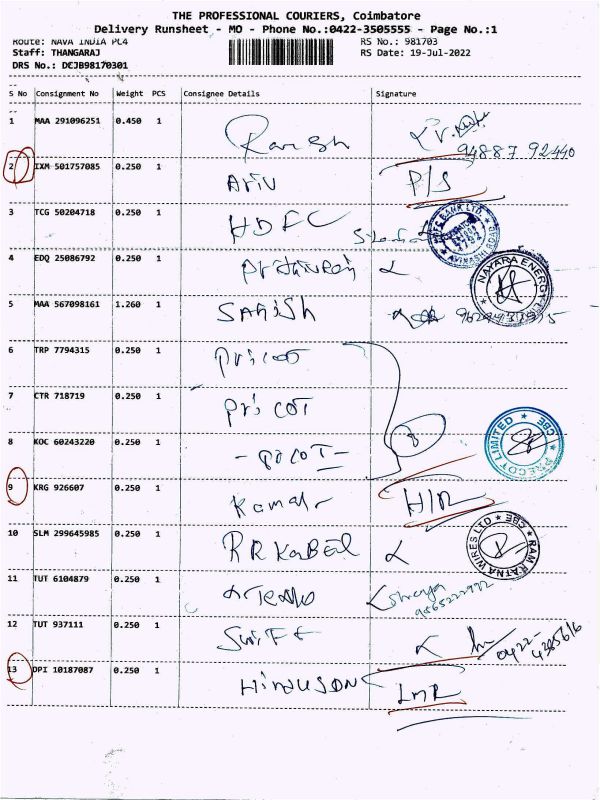 THE PROFESSIONAL COURIERS, Coimbatore
Delivery Runsheet - MO - Phone No.:0422-3505555 - Page No.:1
Route: NAVA INDIA PC4 RS No.: 981703
Staff: THANGARAJ RS Date: 19-Jul-2022
DRS No.: DCJB98170301
S No Consignment No Weight PCS Consignee Details Signature
1 MAA 291096251 0.450 1 Ramesh
94887 92440
2 IXM 501757085 0.250 1 Ariv P/S
3 TCG 50204718 0.250 1 HDFC
BANK LTD. AVINASHI ROAD
4 EDQ 25086792 0.250 1
NAYARA ENERGY
5 MAA 567098161 1.260 1 SATISH
6 TRP 7794315 0.250 1 Pricot
7 CTR 718719 0.250 1 Pricot
8 KOC 60243220 0.250 1
PRECOT LIMITED * CBE *
9 KRG 926607 0.250 1 Kamal H/R
10 SLM 299645985 0.250 1 RR Kabel
RAM RATNA WIRES LTD * CBE *
11 TUT 6104879 0.250 1
12 TUT 937111 0.250 1 Swift
0422-4385616
13 DPI 10187087 0.250 1 Hinduson LMR